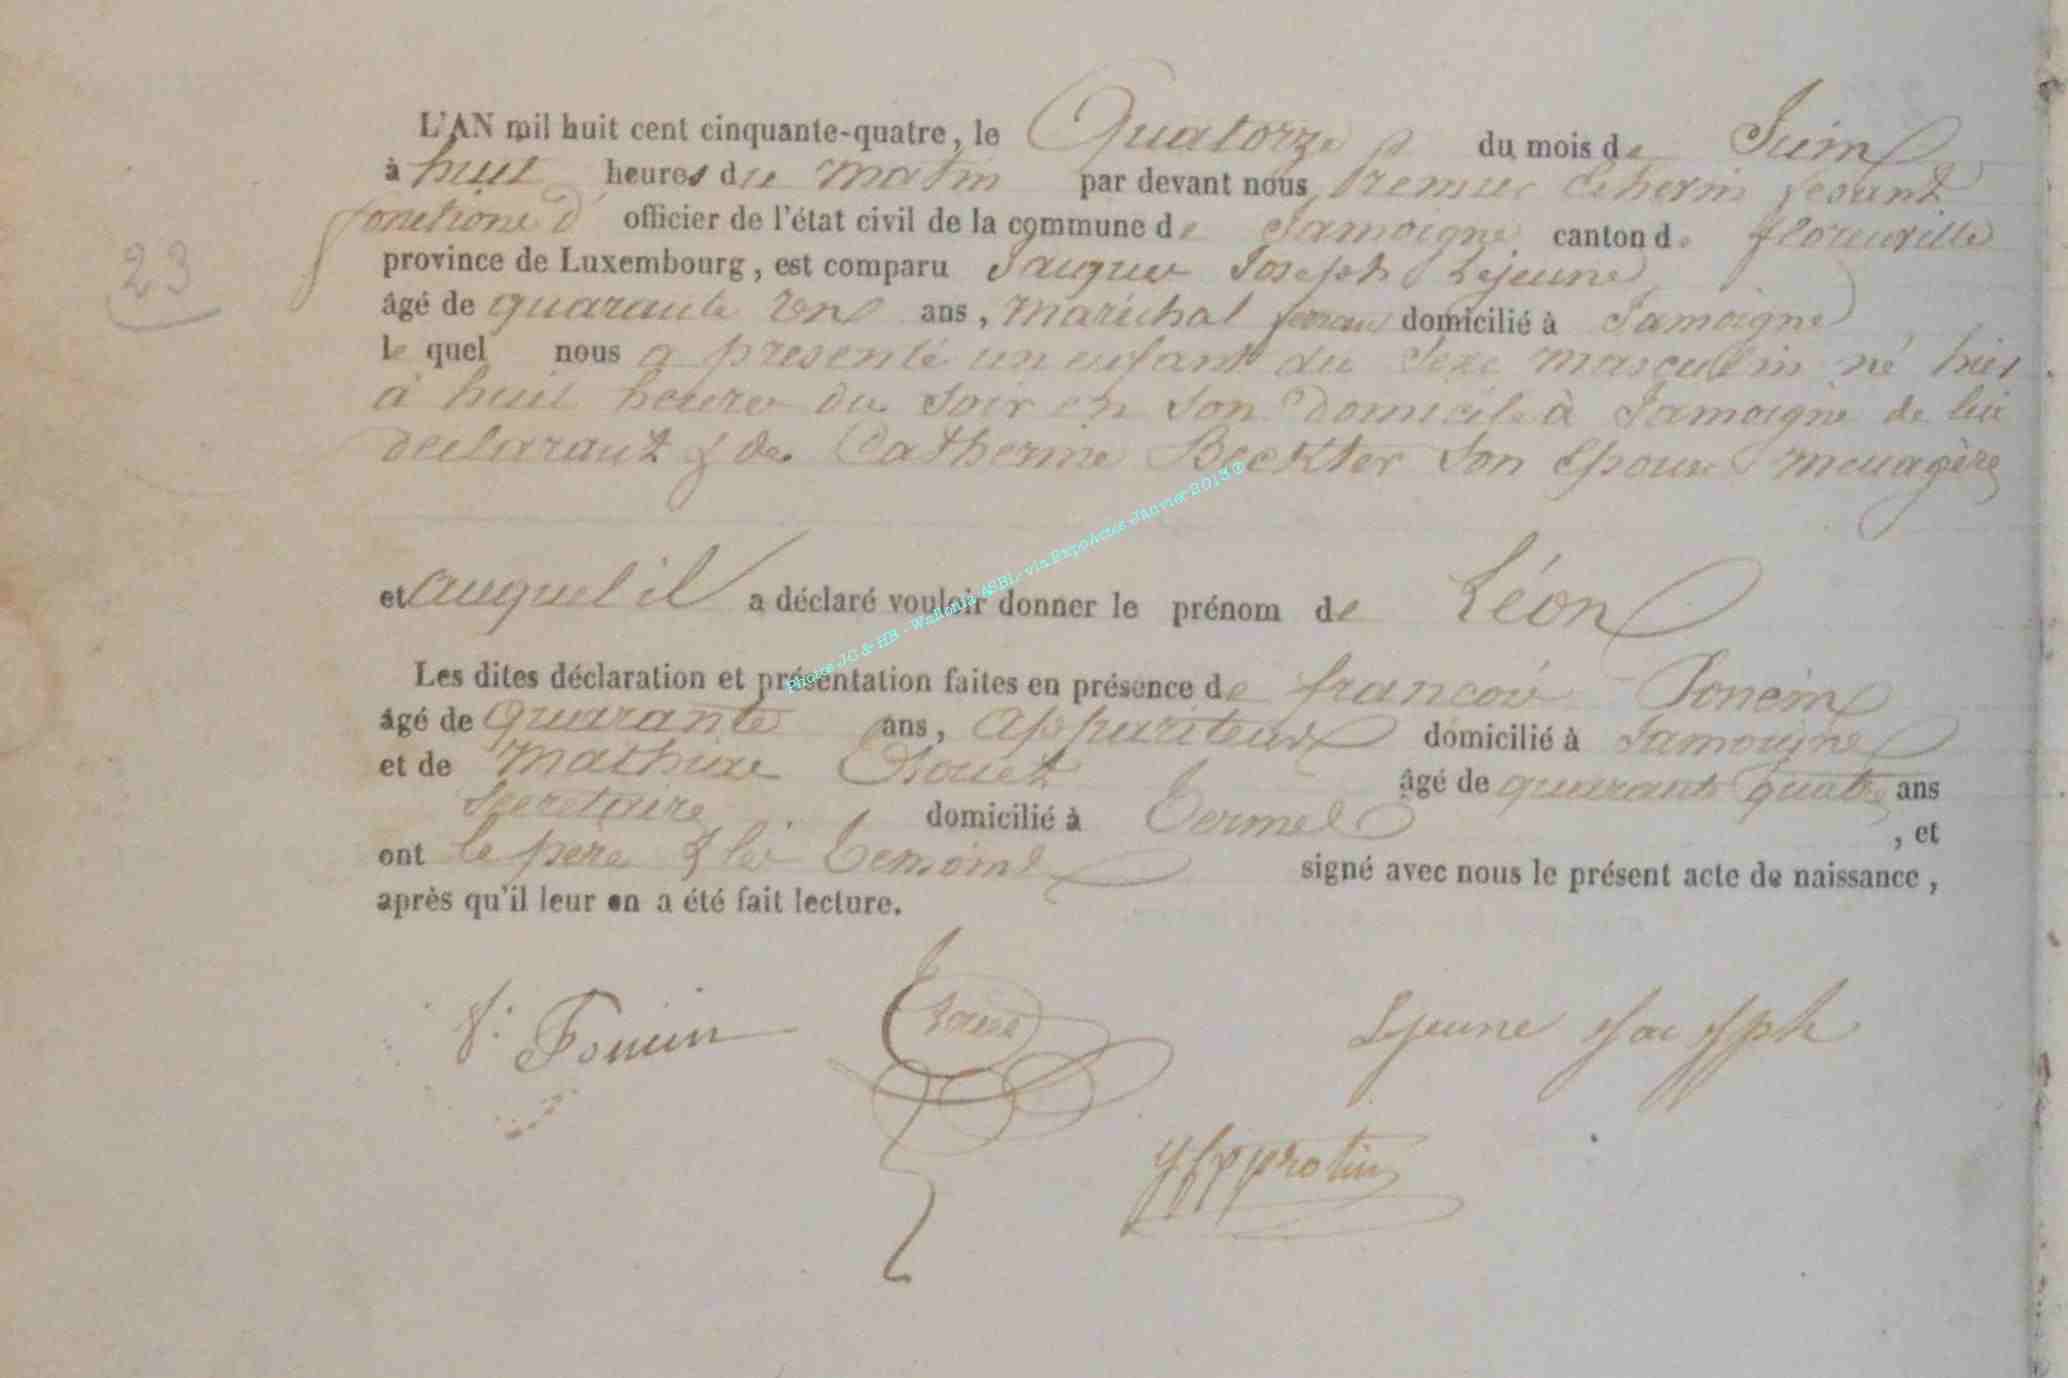 L'AN mil huit cent cinquante-quatre, le Quatorze du mois de Juin
à huit heures du matin par devant nous, Premier Echevin fesant
fonctions d' officier de l'état civil de la commune de Jamoigne canton de florenville
province de Luxembourg, est comparu Jacques Joseph Lejeune
âgé de quarante un ans, maréchal ferrant domicilié à Jamoigne
le quel nous a presenté un enfant du sexe masculin né hier
à huit heures du soir en son domicile à Jamoigne de lui
declarant & de Catherine Beckter son Epouse menagère
23
et auquel il a déclaré vouloir donner le prénom de Léon
Les dites déclaration et présentation faites en présence de françois Poncin
âgé de quarante ans, appariteur domicilié à Jamoigne
et de Mathieu âgé de quarante quatre ans
Secretaire domicilié à Termes , et
ont le père & les temoins signé avec nous le présent acte de naissance,
après qu'il leur en a été fait lecture.
f. Poncin
Lejeune Jac Jsph
Photos JC & HB - Wallonia ASBL - via ExpoActes Janvier 2013 ©